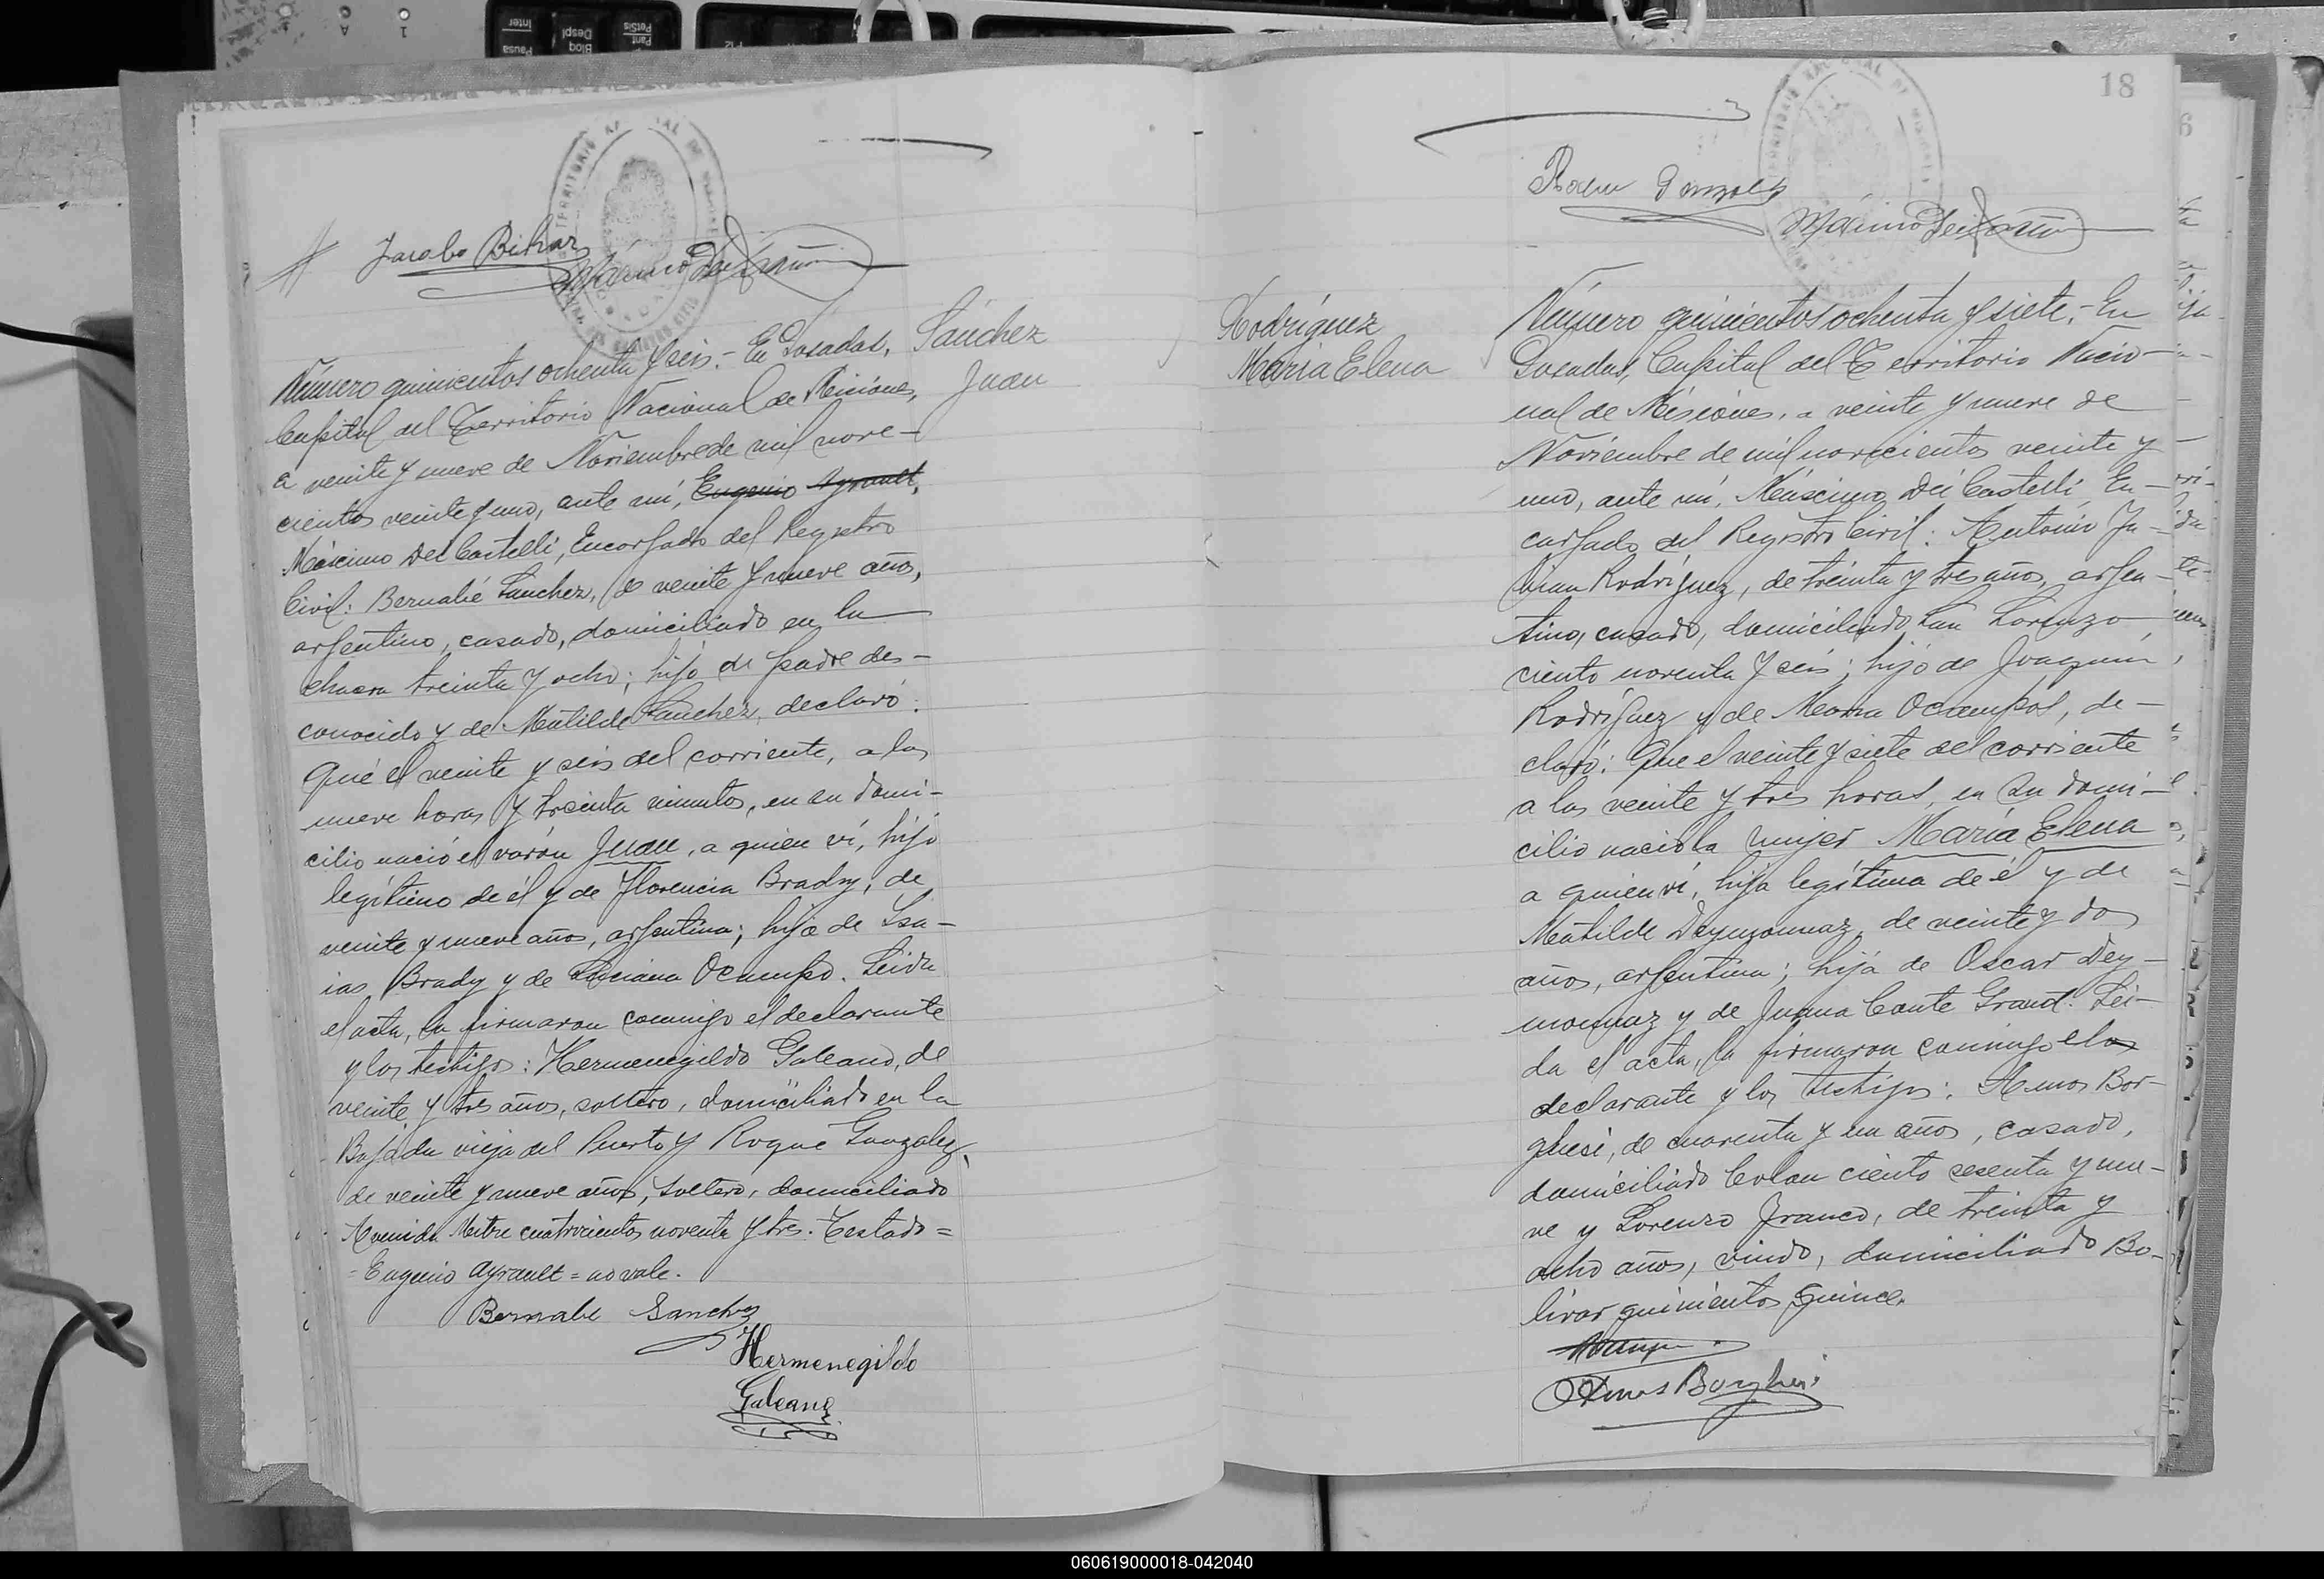 Jacobo Bihar
Máximo Dei Castelli
Sánchez
Juan
Número quinientos ochenta y seis.- En Posadas,
Capital del Territorio Nacional de Misiones,
a veinte y nueve de Noviembre de mil nove-
cientos veinte y uno, ante mí, Eugenio Ayrault,
Máximo Dei Castelli, Encargado del Registro
Civil: Bernabé Sánchez, de veinte y nueve años,
argentino, casado, domiciliado en la
chacra treinta y ocho; hijo de padre des-
conocido y de Matilde Sanchez, declaró:
Que el veinte y seis del corriente, a las
nueve horas y treinta minutos, en su domi-
cilio nació el varón Juan, a quien ví, hijo
legítimo de él y de Florencia Brady, de
veinte y nueve años, argentina; hija de Isa-
ias Brady y de Luciana Ocampo. Leida
el acta, la firmaron conmigo el declarante
y los testigos: Hermenegildo Galeano, de
veinte y tres años, soltero, domiciliado en la
Bajada vieja del Puerto y Roque Gonzalez,
de veinte y nueve años, soltero, domiciliado
Avenida Mitre cuatrocientos noventa y tres. Testado=
=Eugenio Ayrault=no vale.
Bernabe Sanchez
Hermenegildo
Galeano
18
Roque Gonzalez
Máximo Dei Castelli
Rodríguez
María Elena
Número quinientos ochenta y siete.- En
Posadas, Capital del Territorio Nacio-
nal de Misiones, a veinte y nueve de
Noviembre de mil novecientos veinte y
uno, ante mí, Máximo Dei Castelli, En-
cargado del Registro Civil: Antonio Ju-
lian Rodríguez, de treinta y tres años, argen-
tino, casado, domiciliado San Lorenzo
ciento noventa y seis; hijo de Joaquin
Rodríguez y de Maria Ocampos, de-
claró: Que el veinte y siete del corriente
a las veinte y tres horas, en su domi-
cilio nació la mujer María Elena
a quien ví, hija legítima de él y de
Matilde Deymonnaz, de veinte y dos
años, argentina; hija de Oscar Dey-
monnaz y de Juana Cante Grand. Lei-
da el acta, la firmaron conmigo el
declarante y los testigos: Amos Bor-
ghesi, de cuarenta y un años, casado,
domiciliado Colon ciento sesenta y nue-
ve y Lorenzo Franco, de treinta y
ocho años, viudo, domiciliado Bo-
livar quinientos quince.
Amos Borghesi
060619000018-042040